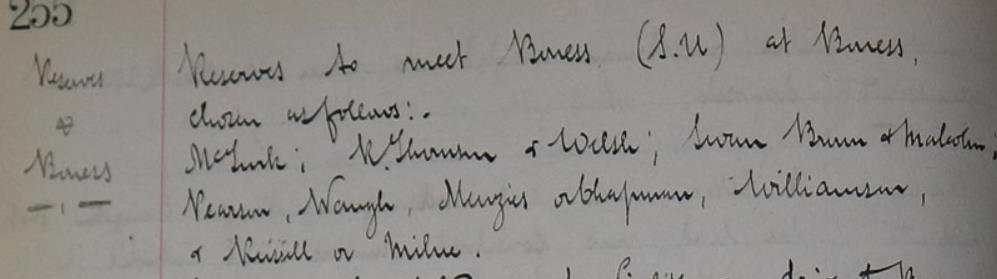 255
Reserves
v
Boness
Reserves to meet Boness (S.U) at Boness,
chosen as follows:-
McTurk; R. Thomson & Welsh; Swan Brown & Malcolm;
Pearson, Waugh, Menzies or Chapman, Williamson,
& Russell or Milne.